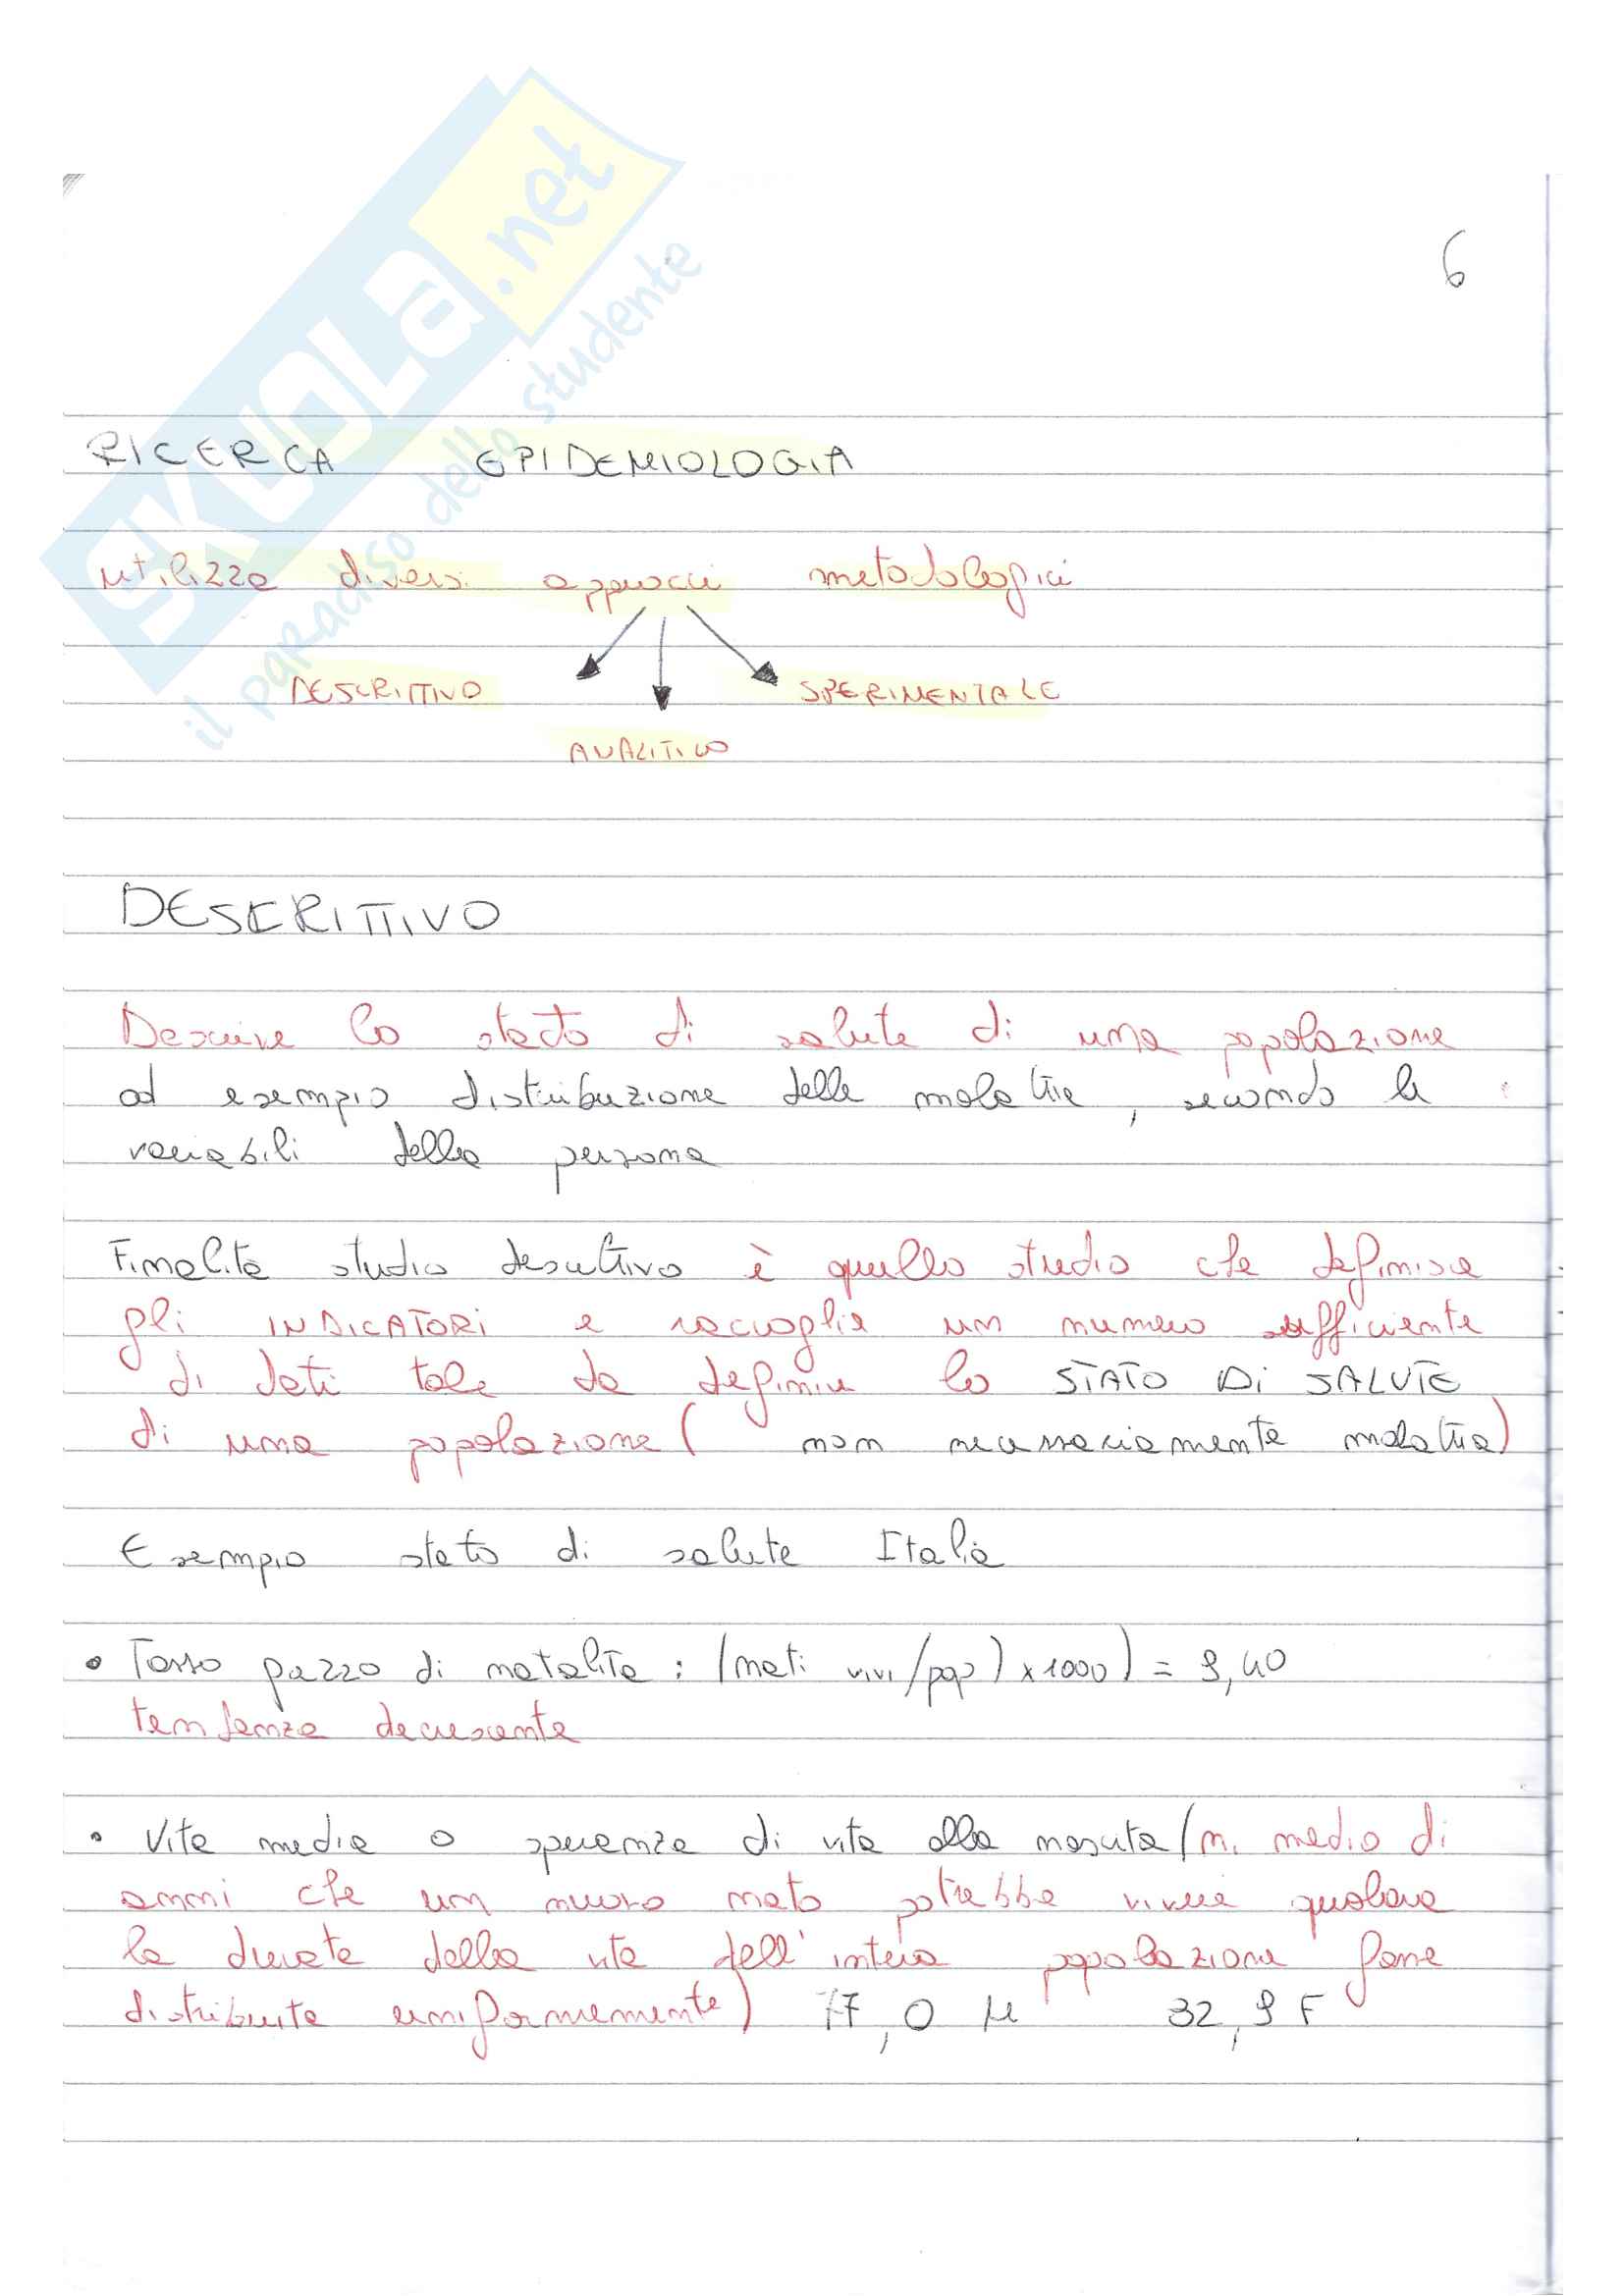 SKUOLA.net
il paradiso dello studente
6
RICERCA EPIDEMIOLOGIA
utilizza diversi approcci metodologici
DESCRITTIVO SPERIMENTALE
ANALITICO
DESCRITTIVO
Descrive lo stato di salute di una popolazione
ad esempio distribuzione delle malattie, secondo le
variabili della persona
Finalità studio descrittivo è quello studio che definisce
gli INDICATORI e raccoglie un numero sufficiente
di dati tale da definire lo STATO Di SALUTE
di una popolazione ( non necessariamente malattia)
Esempio stato di salute Italia
• Tasso pazzo di natalità : (nati vivi/pop) x 1000) = 9,40
tendenza decrescente
• Vita media o speranza di vita alla nascita (n. medio di
anni che un nuovo nato potrebbe vivere qualora
la durata della vita dell'intera popolazione fosse
distribuita uniformemente) 77,0 M 32,9 F